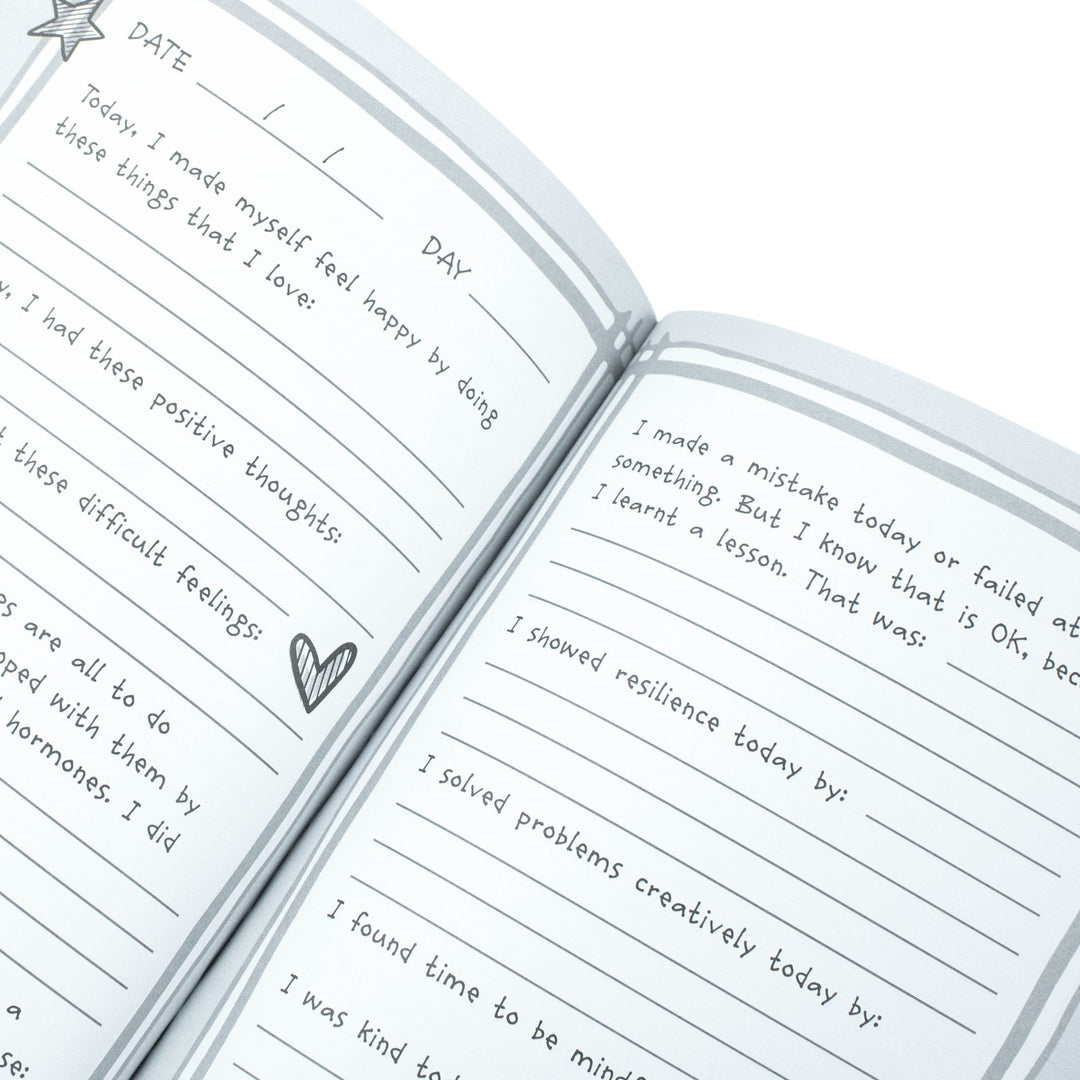 DATE / /
DAY
Today, I made myself feel happy by doing
these things that I love:
I had these positive thoughts:
these difficult feelings:
are all to do
with them by
hormones. I did
a
I made a mistake today or failed at
something. But I know that is OK,
I learnt a lesson. That was:
I showed resilience today by:
I solved problems creatively today by:
I found time to be
I was kind